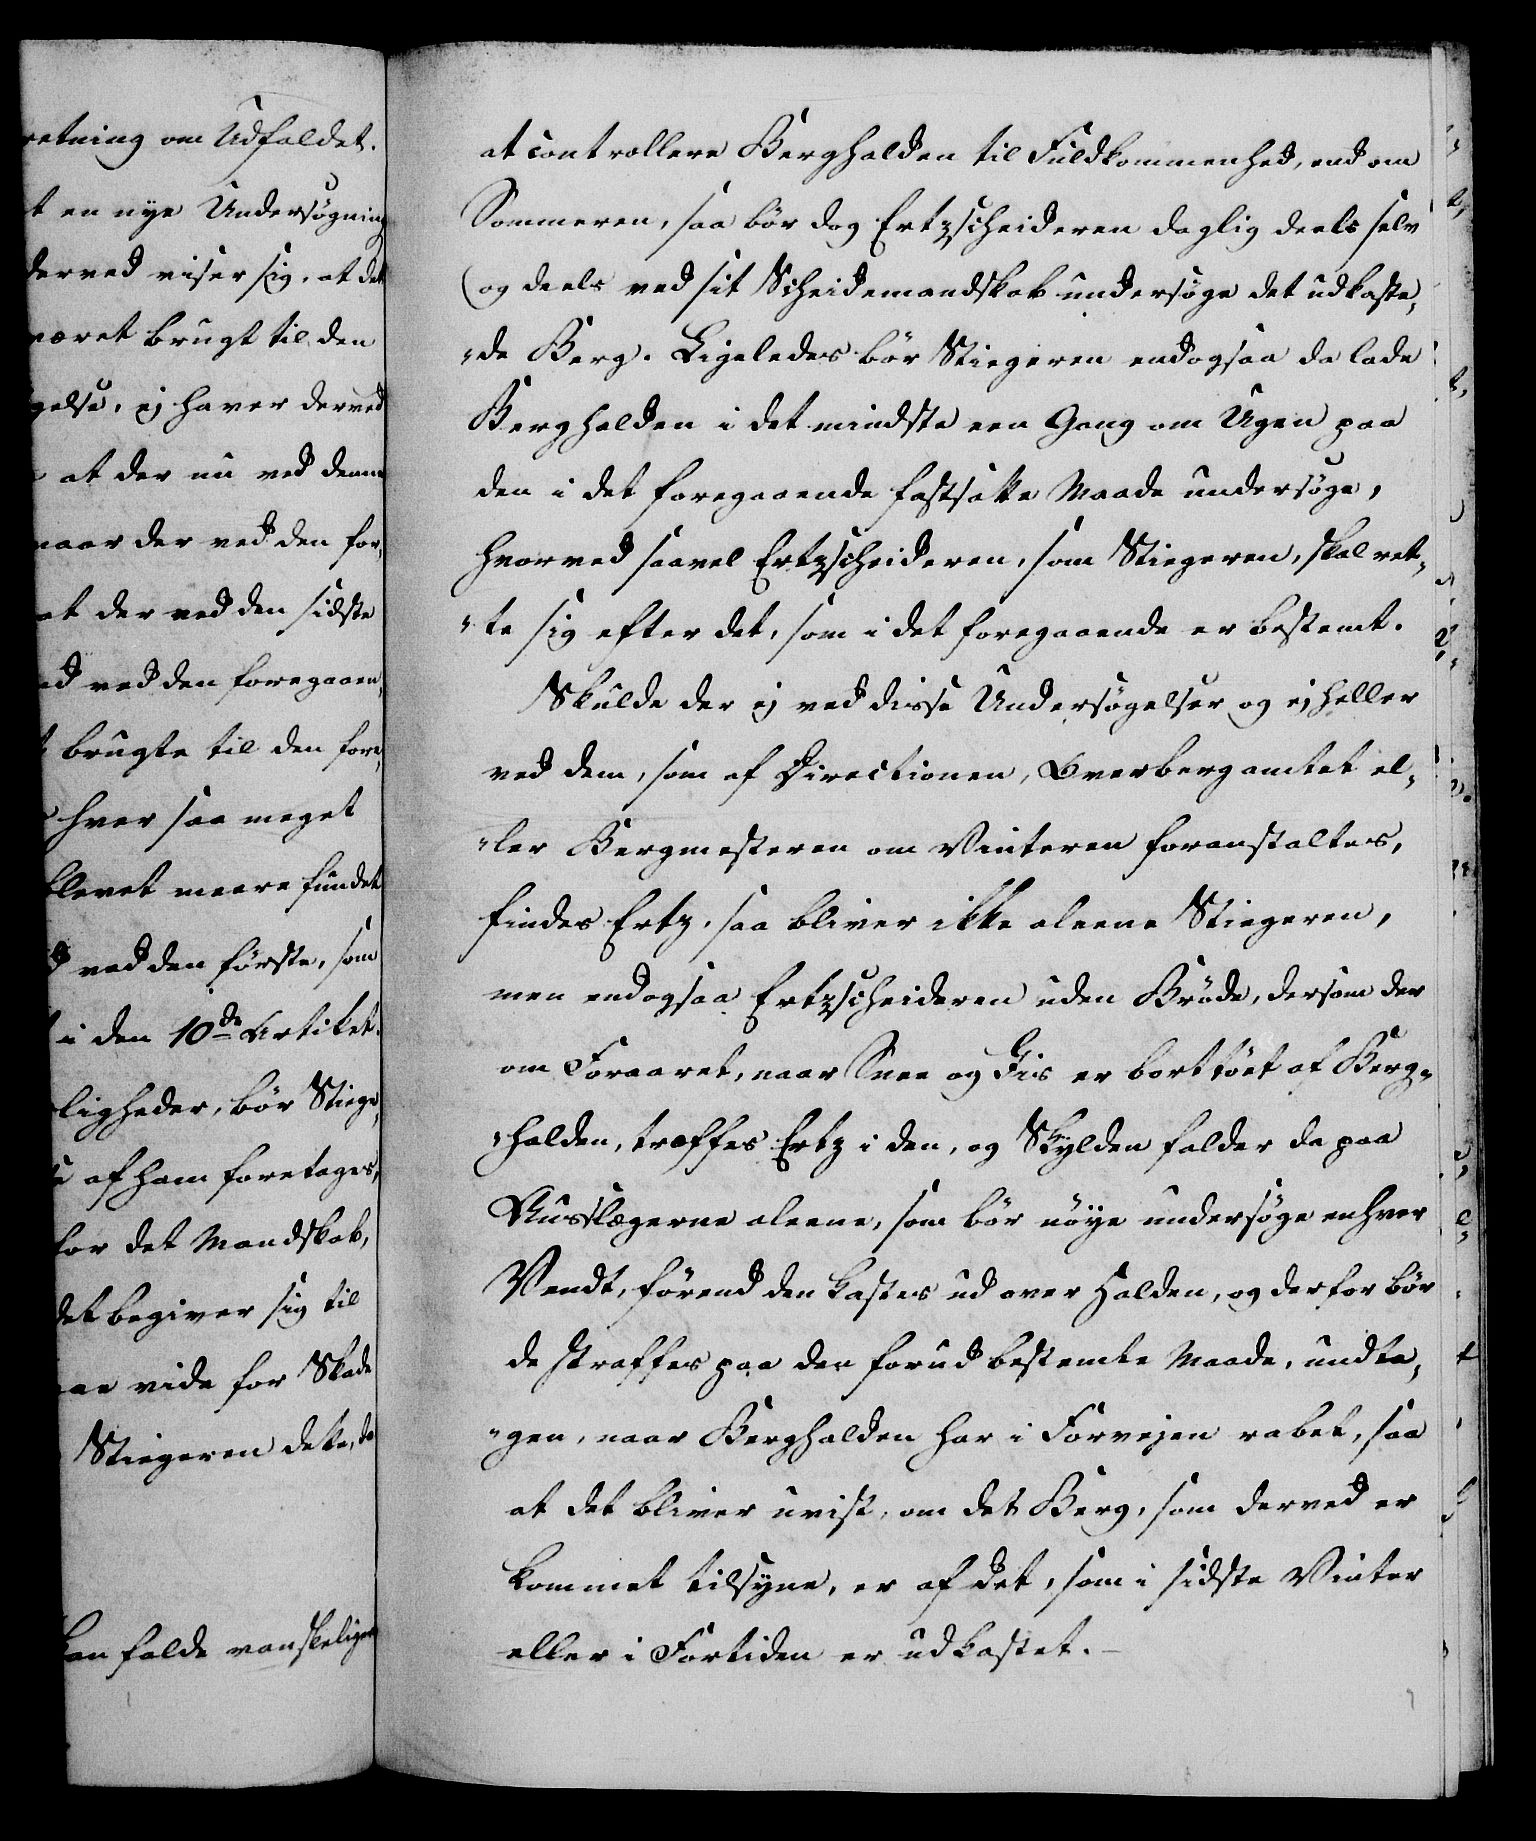 retning om Udfaldet.
t en nye Undersøgning
derved viser sig, at det
været brugt til den
gelse, ej haver derved
at der nu ved denne
naar der ved den for,
at der ved den sidste
ed ved den foregaaen,
brugte til den fore,
hver saa meget
blevet meere fundet
ved den første, som
i den 10de Artikel.
ligheder, bør Stiege,
af ham foretages,
for det Mandskab,
det begiver sig til
aa vide for Skade
Stiegeren dette, da
kan falde vanskeligere
at controllere Berghalden til Fuldkommenhed, end om
Sommeren, saa bør dog Ertzscheideren daglig deels selv
og deels ved sit Scheidemandskab undersøge det udkaste,
"de Berg. Ligeledes bør Stiegeren endogsaa da lade
Berghalden i det mindste een Gang om Ugen paa
den i det foregaaende fastsatte Maade undersøge,
hvorved saavel Ertzscheideren, som Stiegeren, skal ret,
"te sig efter det, som i det foregaaende er bestemt.
Skulde der ej ved disse Undersøgelser og ej heller
ved dem, som af Directionen, Overbergamtet el,
"ler Bergmesteren om Vinteren foranstaltes,
findes Ertz, saa bliver ikke aleene Stiegeren,
men endogsaa Ertzscheideren uden Brøde, dersom der
om Foraaret, naar Snee og Iis er borttøet af Berg,
"halden, træffes Ertz i den, og Skylden falder da paa
Ausslægerne aleene, som bør nøye undersøge enhver
Vendt, førend den kastes ud over Halden, og derfor bør
de straffes paa den forud bestemte Maade, undta,
"gen, naar Berghalden har i Forvejen rabet, saa
at det bliver uvist, om det Berg, som derved er
kommet tilsyne, er af det, som i sidste Vinter
eller i Fortiden er udkastet.